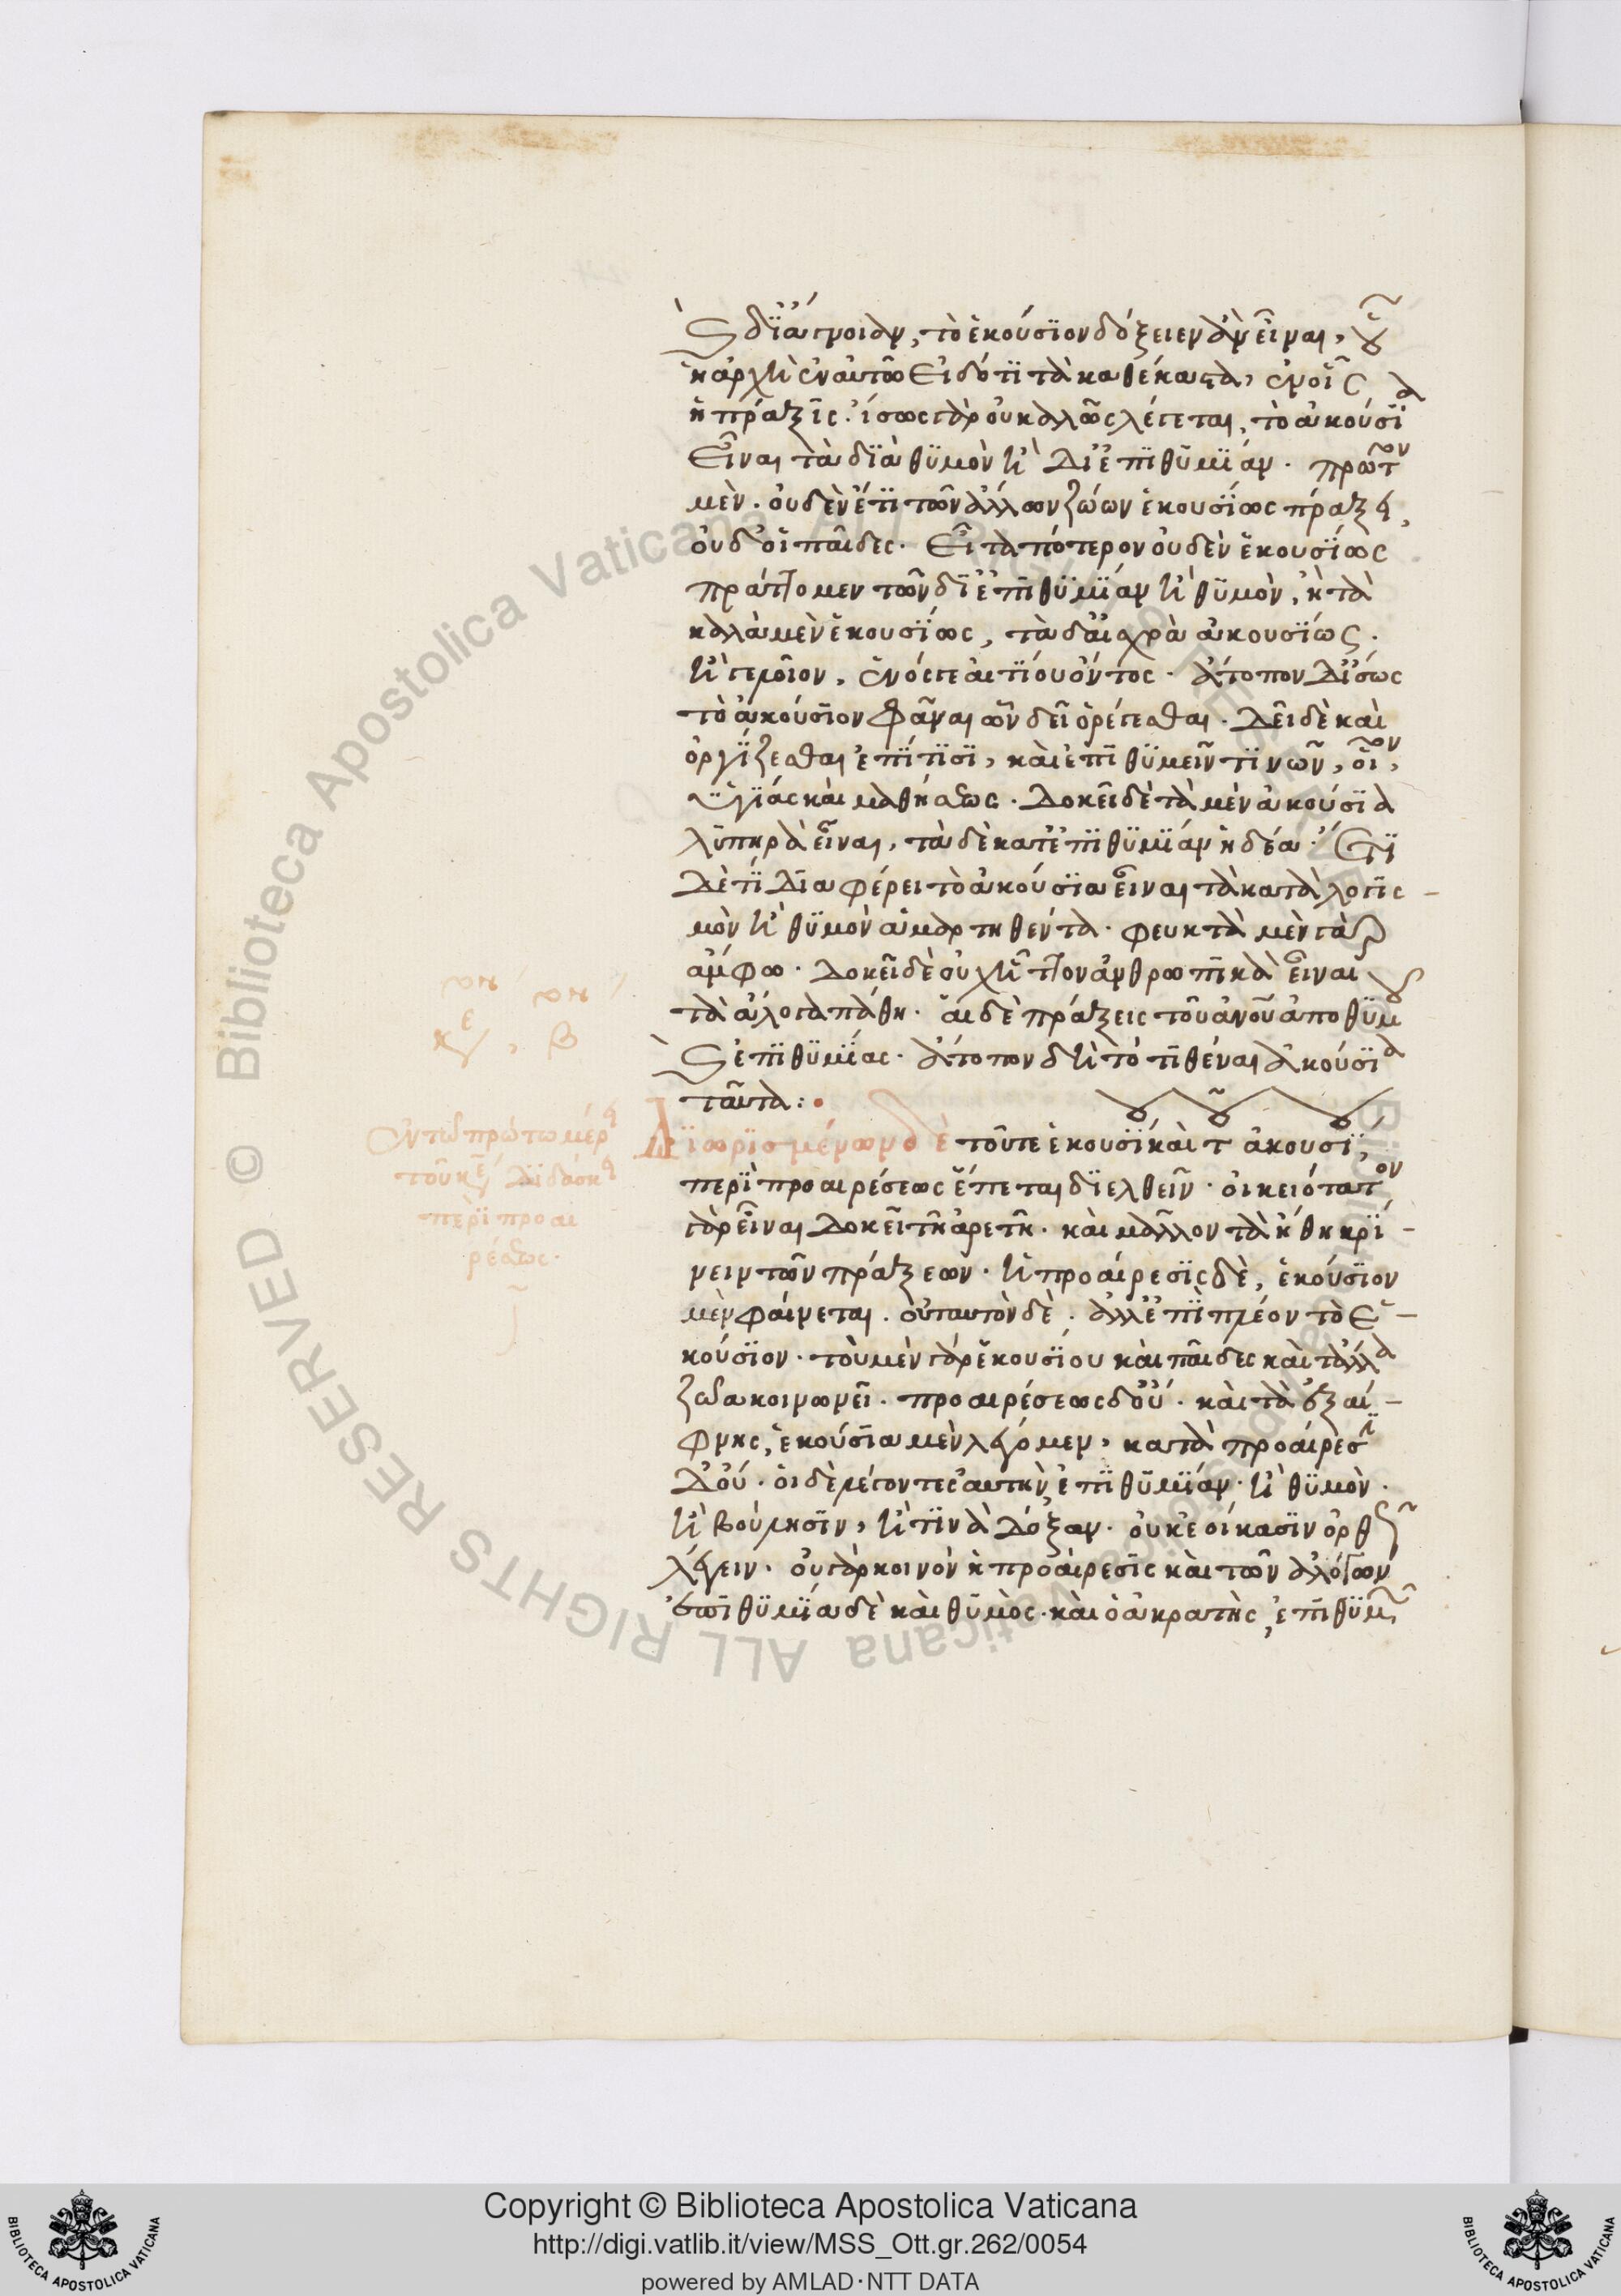 καὶ δι᾽ ἄγνοιαν, τὸ ἑκούσϊον δόξειεν ἂν εἶναι, οὗ
ἡ ἀρχὴ ἐν αὐτῶ εἰδότϊ τὰ καθέκαστα, ἐν οἷς
ἡ πρᾶξϊς. ἴσως γὰρ οὐ καλῶς λέγεται, τὸ ἀκούσϊα
εἶναι τὰ δϊὰ θϋμὸν ἢ δι᾽ ἐπϊθϋμϊάν. πρῶτον
μὲν. οὐδὲν ἔτϊ τῶν ἄλλων ζώων ἑκουσϊως πράξει,
οὐδ᾽ οἱ παῖδες. εἶτα πότερον οὐδὲν ἑκουσϊως
πράττομεν τῶν δϊ᾽ ἐπϊθϋμϊάν ἢ θϋμὸν, ἢ τὰ
καλὰ μὲν ἑκουσϊως, τὰ δ᾽ αἰσχρὰ ἀκουσϊως.
ἢ γελοῖον, ἑνός γε αἰτϊου ὄντος. ἄτοπον δ᾽ ἴσως
τὸ ἀκούσϊον φᾶναι ὧν δεῖ ὀρέγεσθαι. δεῖ δὲ καὶ
ὀργϊζεσθαι ἐπϊ τϊσϊ, καὶ ἐπϊθϋμεῖν τϊνῶν, οἷον,
ὑγϊάς καὶ μαθήσεως. δοκεῖ δὲ τὰ μὲν ἀκούσϊα
λϋπηρὰ εἶναι, τὰ δὲ κατ᾽ ἐπϊθϋμϊάν ἡδέα. ἔτϊ
δὲ τϊ δϊαφέρει τὸ ἀκούσϊα εἶναι τὰ κατὰ λογϊσ-
μὸν ἢ θϋμὸν ἁμαρτηθέντα. φευκτὰ μὲν γὰρ
ἄμφω. δοκεῖ δὲ οὐχ ἧττον ἀνθρωπϊκὰ εἶναι
τὰ ἄλογα πάθη. αἱ δὲ πράξεις τοῦ ἀνοῦ ἀπο θϋμοῦ
καὶ ἐπϊθϋμϊας. ἄτοπον δὴ τὸ τϊθέναι ἀκούσϊα
ταῦτα:
Δϊωρϊσμένων δὲ τοῦ τε ἑκουσϊ καὶ τ ἀκουσϊ,
περϊ προαιρέσεως ἕπεται δϊελθεῖν. οἰκειότατον
γὰρ εἶναι δοκεῖ τῆ ἀρετῆ. καὶ μᾶλλον τὰ ἤθη κρϊ-
νειν τῶν πράξεων. ἡ προαίρεσϊς δὲ, ἑκούσϊον
μὲν φαίνεται. οὐ ταυτὸν δὲ. ἀλλ᾽ ἐπϊ πλέον τὸ ἑ-
κούσϊον. τοῦ μὲν γὰρ ἑκουσϊου καὶ παῖδες καὶ τἄλλα
ζῶα κοινωνεῖ. προαιρέσεως δ᾽ οὔ. καὶ τὰ ἐξαί-
φνης, ἑκούσϊα μὲν λέγομεν, κατὰ προαίρεσϊν
δ᾽ οὔ. οἱ δὲ λέγοντες αὐτὴν ἐπϊθϋμϊάν. ἢ θϋμὸν.
ἢ βούλησϊν, ἢ τϊνὰ δόξαν. οὐκ ἐοίκασϊν ὀρθῶς
λέγειν. οὐ γὰρ κοινὸν ἡ προαίρεσϊς καὶ τῶν ἀλόγων
ἐπϊθϋμϊα δὲ καὶ θϋμὸς. καὶ ὁ ἀκρατὴς, ἐπϊθϋμῶν
ἐν τῶ πρώτω μέρει
τοῦ κεφ διδάσκει
περϊ προαι
ρέσεως.
© Biblioteca Apostolica Vaticana ALL RIGHTS RESERVED
Copyright © Biblioteca Apostolica Vaticana
http://digi.vatlib.it/view/MSS_Ott.gr.262/0054
powered by AMLAD·NTT DATA
BIBLIOTECA APOSTOLICA VATICANA
BIBLIOTECA APOSTOLICA VATICANA